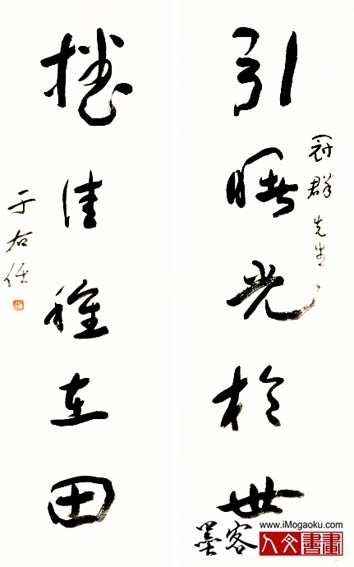 引曙光於世
冠群先生
播佳種在田
于右任
墨客
www.iMogaoku.com
人文書畫